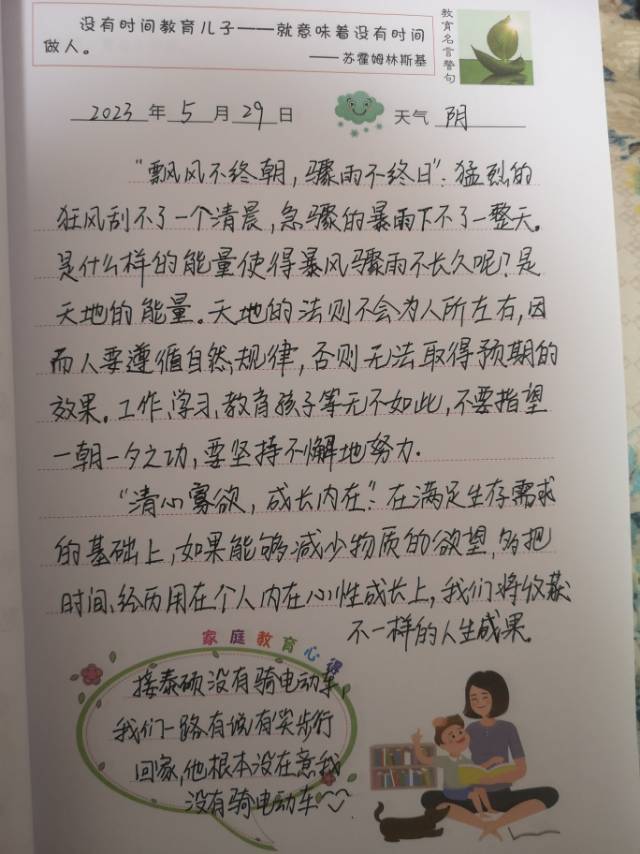 没有时间教育儿子——就意味着没有时间
做人。
——苏霍姆林斯基
教育名言警句
2023年5月29日 天气 阴
“飘风不终朝，骤雨不终日”：猛烈的
狂风刮不了一个清晨，急骤的暴雨下不了一整天。
是什么样的能量使得暴风骤雨不长久呢？是
天地的能量。天地的法则不会为人所左右，因
而人要遵循自然规律，否则无法取得预期的
效果。工作、学习、教育孩子等无不如此，不要指望
一朝一夕之功，要坚持不懈地努力.
“清心寡欲，成长内在”：在满足生存需求
的基础上，如果能够减少物质的欲望，多把
时间、经历用在个人内在心性成长上，我们将收获
不一样的人生成果。
家庭教育心得
接泰硕没有骑电动车，
我们一路有说有笑步行
回家，他根本没在意我
没有骑电动车